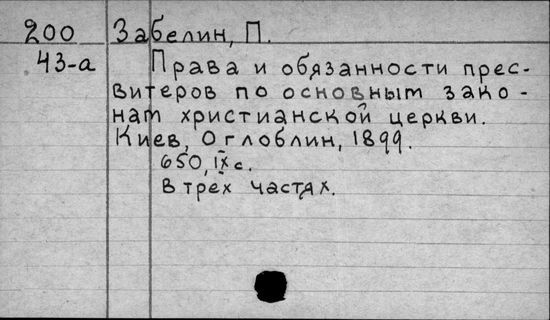 200 Забелин, П.
43-а Права и обязанности прес-
витеров по основным зако-
нам христианской церкви.
Киев, Оглоблин, 1899.
650, IX с.
В трех частях.